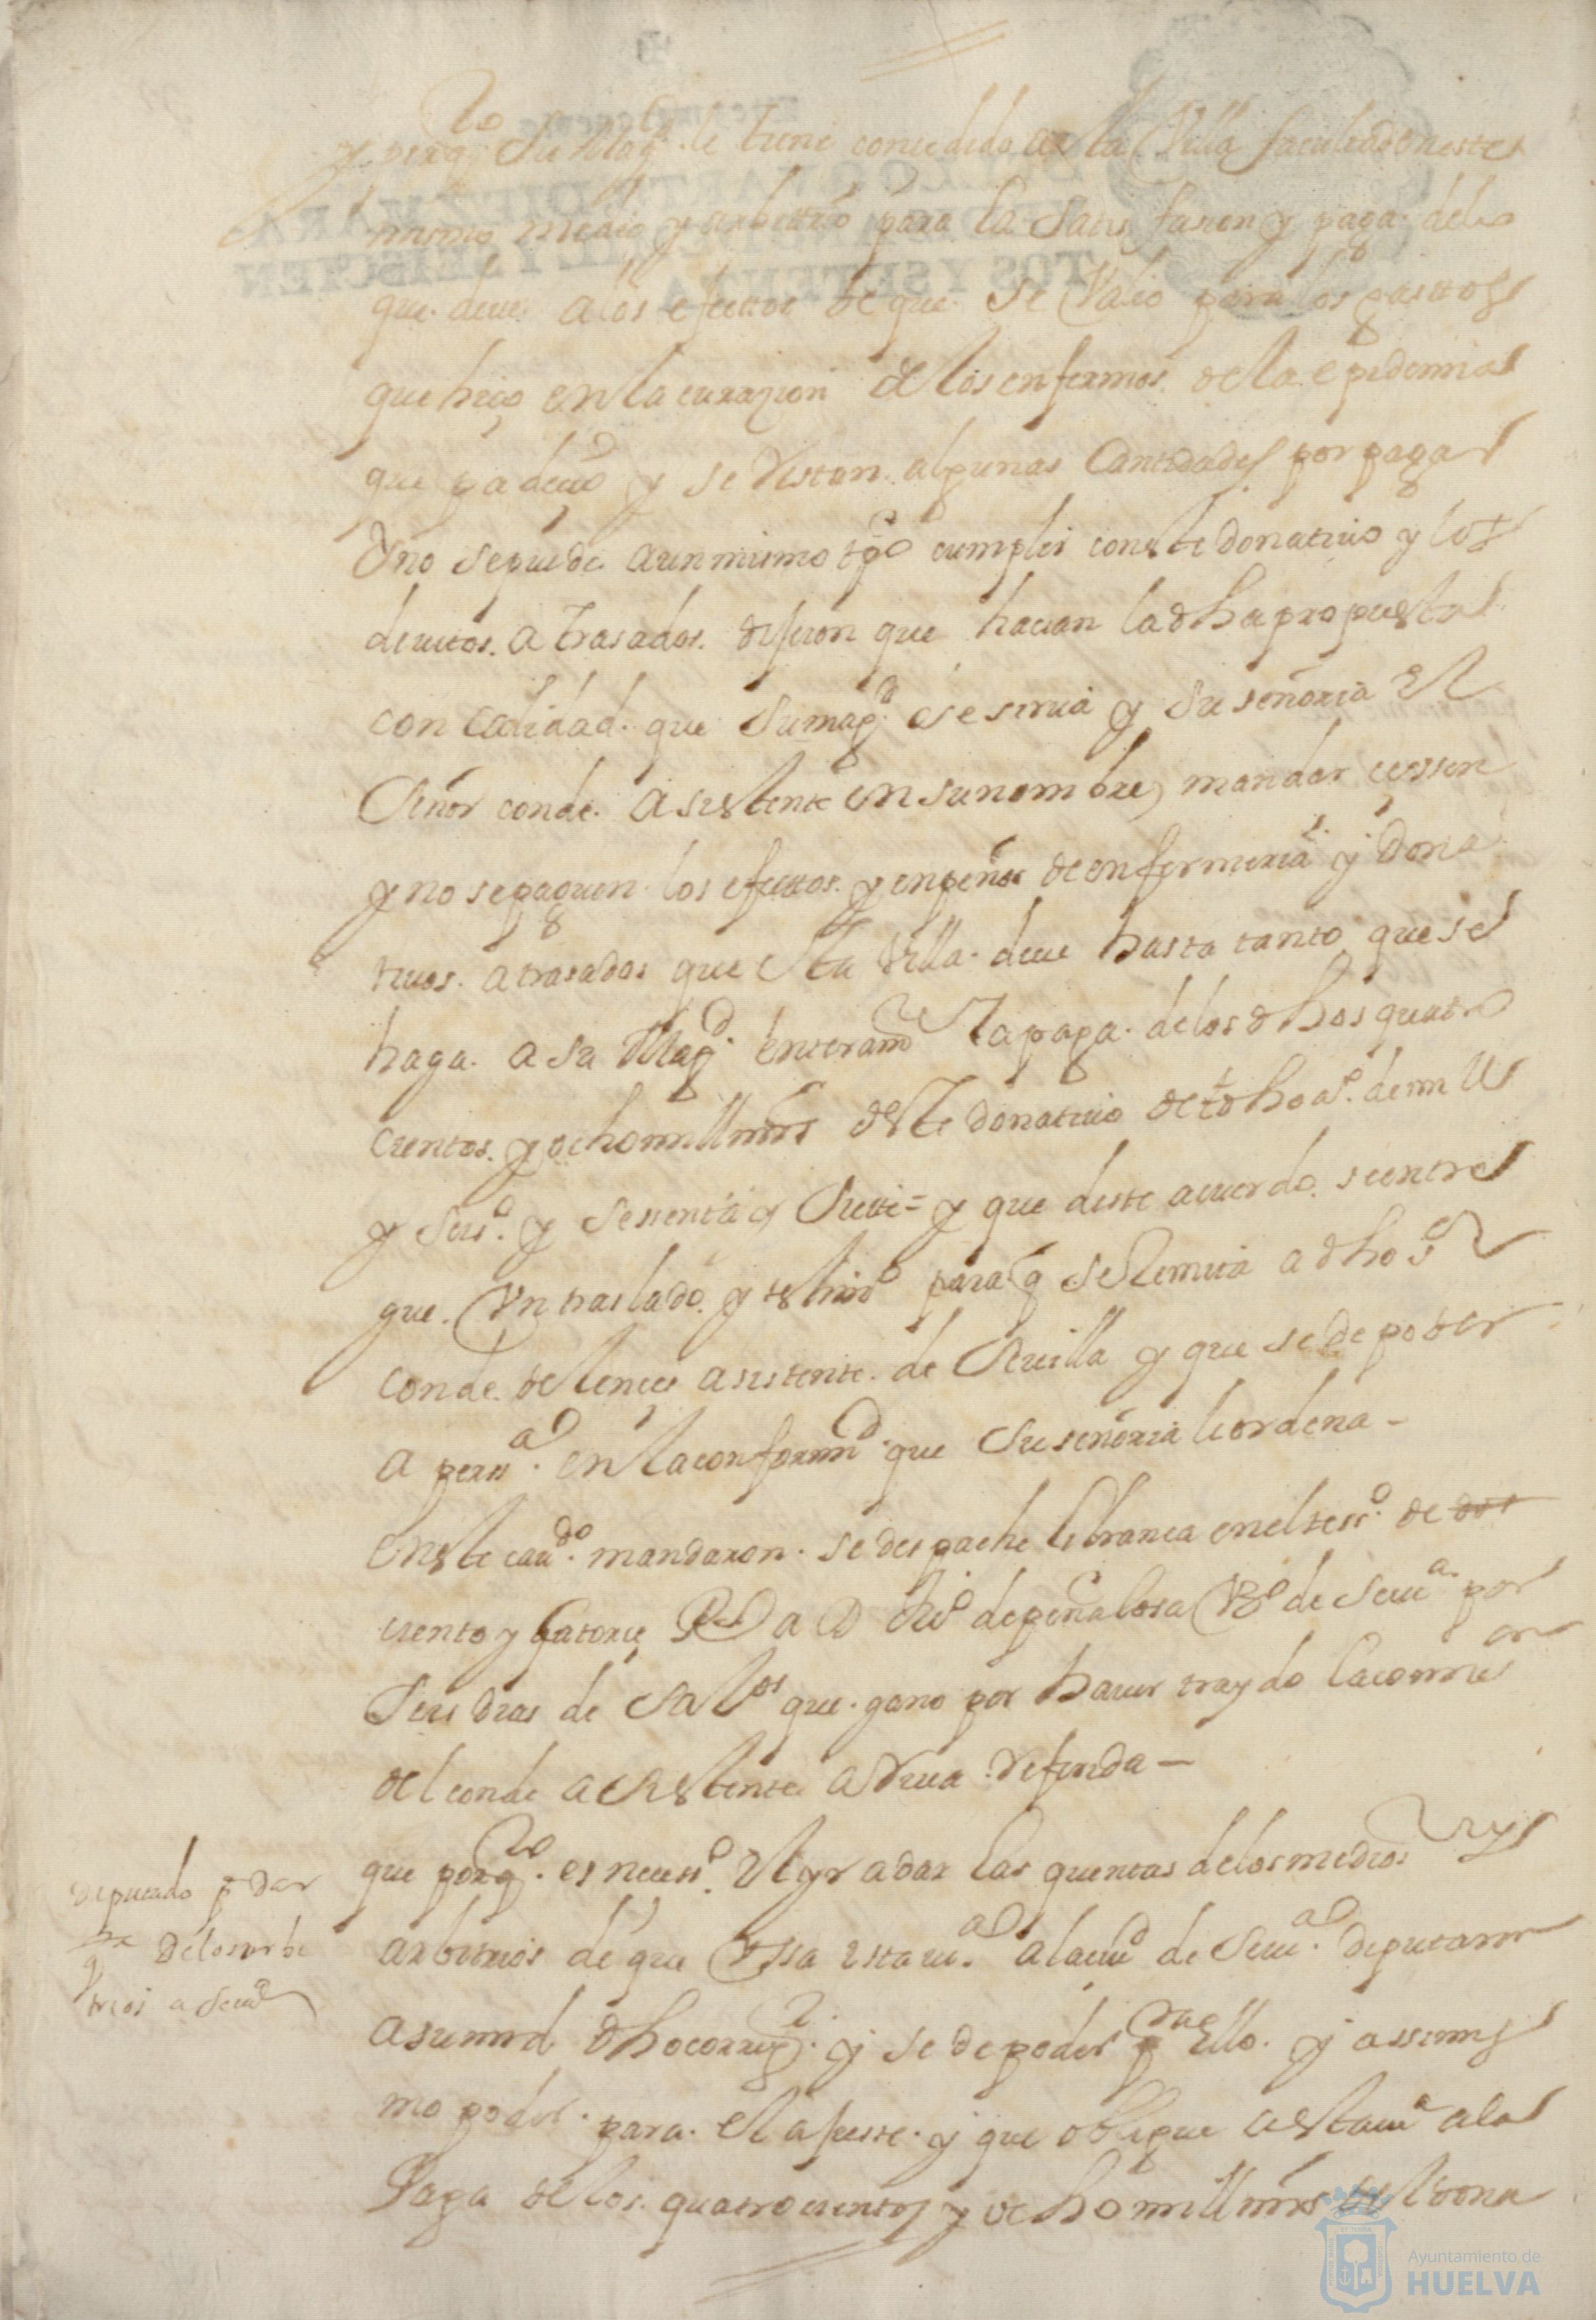 y porq^{to} su Mag^d le tiene concedido a esta Villa facultad en este
mismo medio y arbitrio para la satisfazon y paga de lo
que deue a los efectos de que se Valio para los gastos
que hiço en la curazion de los enfermos de la epidemia
que padecio y se restan algunas Cantidades por pagar
y no se puede a un mismo tpo cumplir con este donatiuo y los
deuitos atrasados dijeron que hacian la dha propuesta
con calidad que su mag^d se sirua y su señoria el
Señor conde asistente en su nombre mandar cessen
y no se paguen los efectos y enpeños de enfermeria y dona
tiuos atrasados que esta Villa deue hasta tanto que se
haga a su Mag^d enteram^{te} la paga de los dhos quatro
cientos y ocho mill mrs deste donatiuo de dho a^o de mill
y seis^o y sessenta y siete = y que deste acuerdo se entre
gue Vn traslado y testim^o para q se Remita a dho s^r
conde de lences asistente de Seuilla y que se de poder
a pers^a en la conformi^d que su señoria lo ordena -
en este cau^{do} mandaron se despache libranca en el tess^o de dos
ciento y catorce R^s a D Ju^o de peñalosa V^o de Seui^a por
seis dias de sal^{os} que gano por hauer traydo la comi^{on}
del conde asistente a Riua Referida -
que porq^{to} es necess^o el yr a dar las quentas de los medios y
arbitrios de que Vssa esta ui^a a la ciu^d de Seui^a diputaron
a su mrd dho correg^r y se de poder p^{ra} ello y assimis
mo poder para el ajuste y que oblique a esta ui^a a la
Paga de los quatrocientos y ocho mill mrs del dona
Diputado p^a dar
q^{tas} de los arbi
trios a Seui^a
Ayuntamiento de
HUELVA